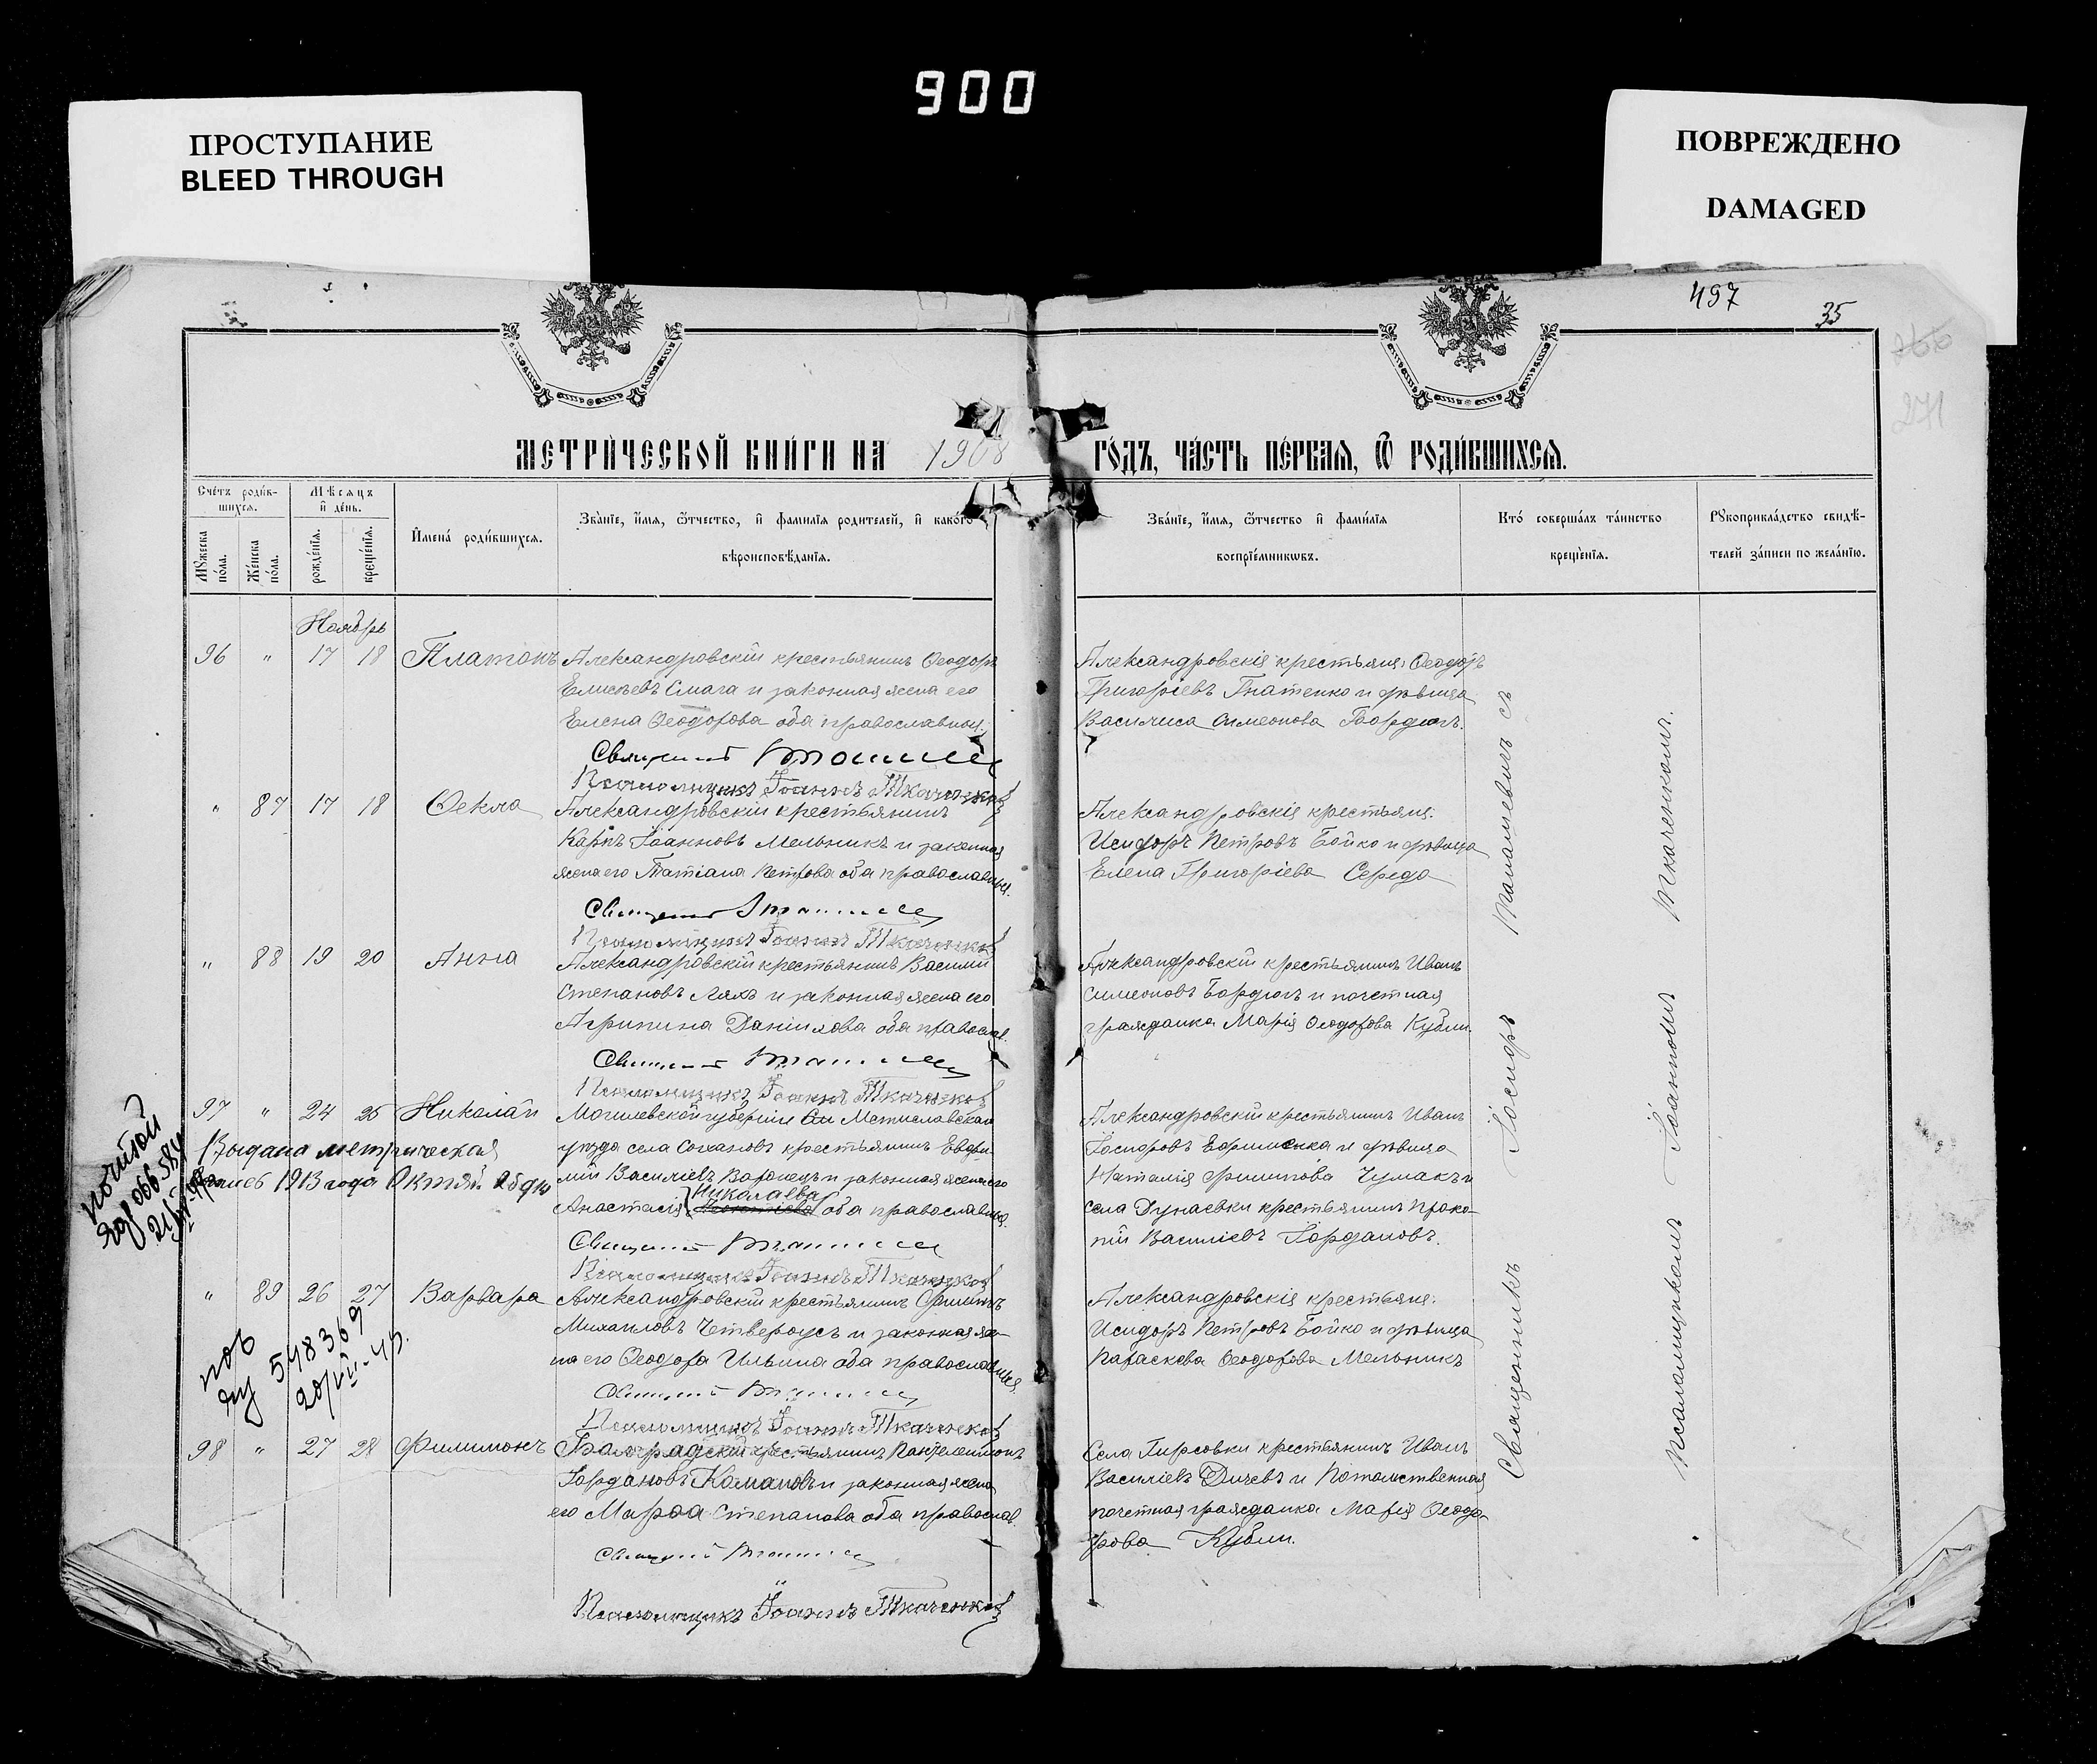 900
ПРОСТУПАНИЕ
BLEED THROUGH
ПОВРЕЖДЕНО
DAMAGED
497
35
271
МЕТРИЧЕСКОЙ КНИГИ НА 1908 ГОДЪ, ЧАСТЬ ПЕРВАЯ, Ѡ РОДИВШИХСЯ.
Счетъ родив-
шихся.
Мужеска
пола.
Женска
пола.
Мѣсяцъ
и день.
рожденія.
крещенія.
Имена родившихся.
Званіе, имя, ѿчество, и фамилія родителей, и какого
вѣроисповѣданія.
Званіе, имя, ѿчество и фамилія
воспріемниковъ.
Кто совершалъ таинство
крещенія.
Рукоприкладство свидѣ-
телей записи по желанію.
Ноябрь
96 " 17 18 Платонъ
Александровскій крестьянинъ Ѳеодоръ
Елисѣевъ Смага и законная жена его
Елена Ѳеодорова оба православные.
Священникъ
Псаломщикъ Іоаннъ Ткаченко
Александровскія крестьяне: Ѳеодоръ
Григоріевъ Гнатенко и дѣвица
Василиса Симеонова Бордюгъ.
" 87 17 18 Ѳекла
Александровскій крестьянинъ
Карпъ Іоанновъ Мельникъ и законная
жена его Татіана Петрова оба православные.
Священникъ
Псаломщикъ Іоаннъ Ткаченко
Александровскія крестьяне:
Исидоръ Петровъ Бойко и дѣвица
Елена Григоріева Середа
" 88 19 20 Анна
Александровскій крестьянинъ Василій
Степановъ Ляхъ и законная жена его
Агрипина Даніилова оба православ.
Священникъ
Псаломщикъ Іоаннъ Ткаченко
Александровскій крестьянинъ Иванъ
Симеоновъ Бордюгъ и почетная
гражданка Марія Ѳеодорова Кубли.
97 " 24 25 Николай
Выдана метрическая
1913 года Октяб. 25 дня
Могилевской губерніи Мстиславскаго
уѣзда села крестьянинъ Евѳи-
мій Василіевъ Воронецъ и законная жена его
Анастасія Николаева оба православные.
Священникъ
Псаломщикъ Іоаннъ Ткаченко
Александровскій крестьянинъ Иванъ
Іосифовъ и дѣвица
Наталія Филипова Чумакъ и
села Дунаевки крестьянинъ Проко-
пій Василіевъ Іордановъ.
" 89 26 27 Варвара
Александровскій крестьянинъ Филиппъ
Михаиловъ Четвероусъ и законная же-
на его Ѳеодора Ильина оба православные.
Священникъ
Псаломщикъ Іоаннъ Ткаченко
Александровскія крестьяне:
Исидоръ Петровъ Бойко и дѣвица
Параскева Ѳеодорова Мельникъ
пов
548369
98 " 27 28 Филимонъ
Болградскій крестьянинъ Пантелеимонъ
Іордановъ Комановъ и законная жена
его Марѳа Степанова оба православ.
Священникъ
Псаломщикъ Іоаннъ Ткаченко
Села Гирсовки крестьянинъ Иванъ
Василіевъ Дичевъ и Потомственная
почетная гражданка Марія Ѳеодо-
рова Кубли.
Священникъ Іосифъ съ
псаломщикомъ Іоанномъ Ткаченкомъ.